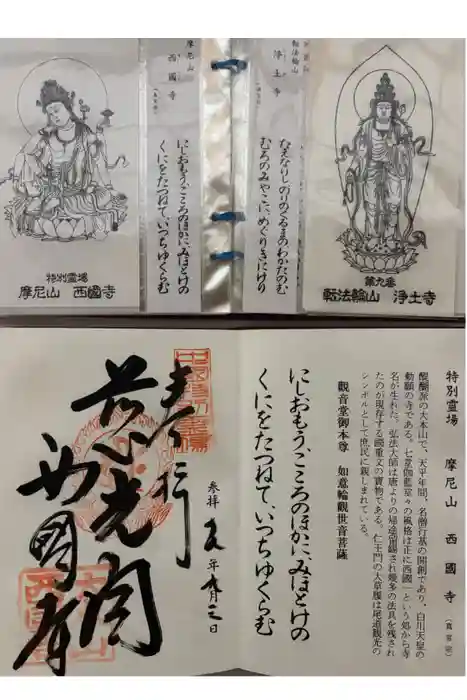 特別霊場
摩尼山 西國寺
摩尼山
西國寺
にしおもう、こころのほかに、みほとけの
くにをたつねて、いつちゆくらむ
転法輪山
浄土寺
むろのみやこに、めぐりきにけり
第九番
転法輪山 浄土寺
特別霊場 摩尼山 西國寺 (真言宗)
醍醐派の大本山で、天平年間、名僧行基の開創であり、白川天皇の
勅願の寺である。七堂伽藍堂々の風格は正に西國一という処から寺
名が生れた。弘法大師は唐よりの帰途留錫され幾多の法具を残され
たのが現存する国重文の寳物である。仁王門の大草履は尾道観光の
シンボルとして庶民に親しまれている。
観音堂御本尊 如意輪観世音菩薩
にしおもう、こころのほかに、みほとけの
くにをたつねて、いつちゆくらむ
参拝
年
奉行
西國寺